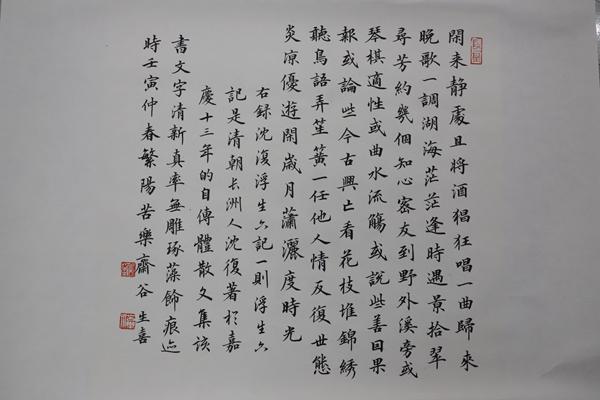 閑来静處且將酒猖狂唱一曲歸來
晚歌一調湖海茫茫逢時遇景拾翠
尋芳約幾個知心密友到野外溪旁或
琴棋適性或曲水流觴或説些善因果
報或論些今古興亡看花枝堆錦綉
聽鳥語弄笙簧一任他人情反復世態
炎凉優遊閑歲月蕭灑度時光
右録沈復浮生六記一則浮生六
記是清朝長洲人沈復著於嘉
慶十三年的自傳體散文集該
書文字清新真率無雕琢藻飾痕迹
時壬寅仲春繁陽苦樂齋谷生喜